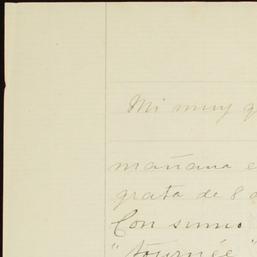 Mi muy q
mañana e
grata de 8 d
Con sumo
"tournée"